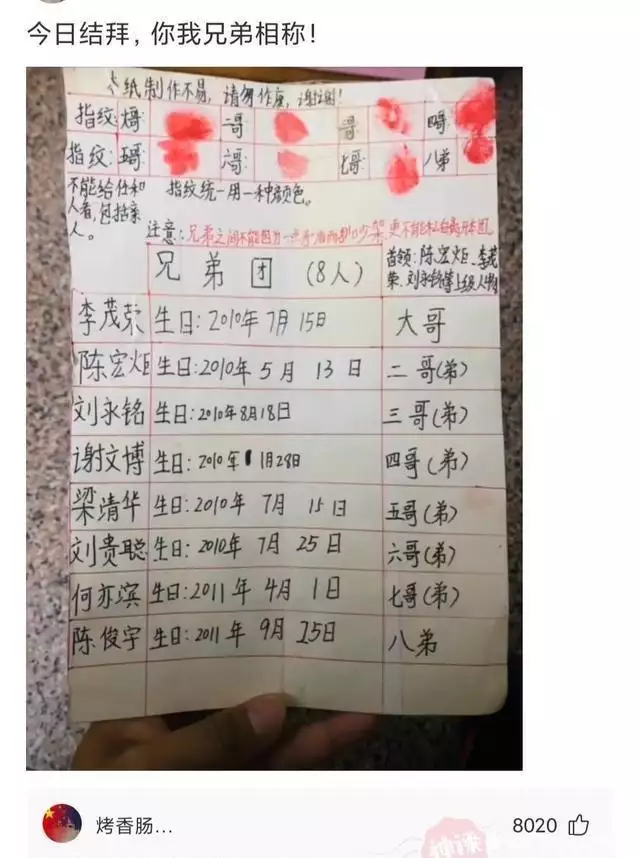 今日结拜，你我兄弟相称！
本纸制作不易，请勿作废，谢谢！
指纹：大哥： 二哥： 三哥： 四哥：
指纹：五哥： 六哥： 七哥： 八弟：
不能给任和人看，包括亲人。
指纹统一用一种颜色。
注意：兄弟之间不能因为一点矛盾而吵架，更不能
首领：陈宏炬、李茂荣、刘永铭等上级人物
兄弟团（8人）
李茂荣 生日：2010年7月15日 大哥
陈宏炬 生日：2010年5月13日 二哥（弟）
刘永铭 生日：2010年8月18日 三哥（弟）
谢文博 生日：2010年 1月28日 四哥（弟）
梁清华 生日：2010年7月15日 五哥（弟）
刘贵聪 生日：2010年7月25日 六哥（弟）
何亦滨 生日：2011年4月1日 七哥（弟）
陈俊宇 生日：2011年9月15日 八弟
烤香肠... 8020